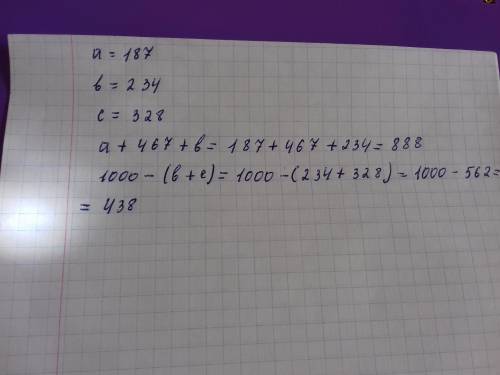 a = 187
в = 234
с = 328
a + 467 + в = 187 + 467 + 234 = 888
1000 - (в + с) = 1000 - (234 + 328) = 1000 - 562 =
= 438